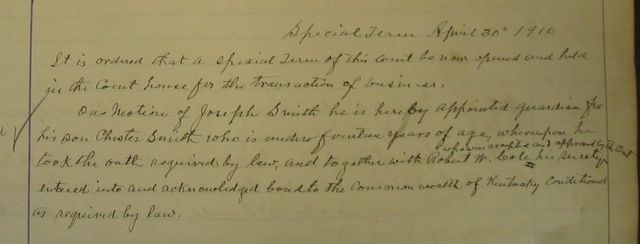 Special Term April 30th 1910
It is ordered that a special Term of this Court be now opened and held
in the Court house for the transaction of business.
On Motion of Joseph Smith he is hereby appointed guardian for
his son Chester Smith who is under fourteen years of age, whereupon he
who was accepted and approved by the Court
took the oath required by law, and together with Robert W. Cole his surety
entered into and acknowledged bond to the Commonwealth of Kentucky Conditioned
as required by law.